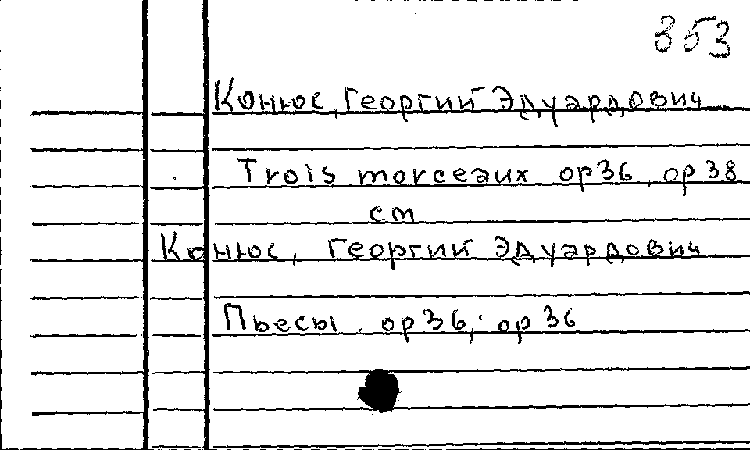 853
Конюс, Георгий Эдуардович
Trois morceaux op 36, op 38
cm
Конюс, Георгий Эдуардович
Пьесы. op 36, op 36